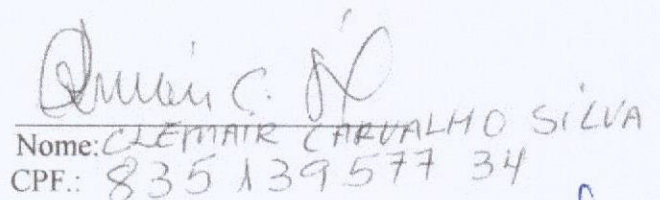 Nome: CLEMAIR CARVALHO SILVA
CPF.: 835 139 577 34